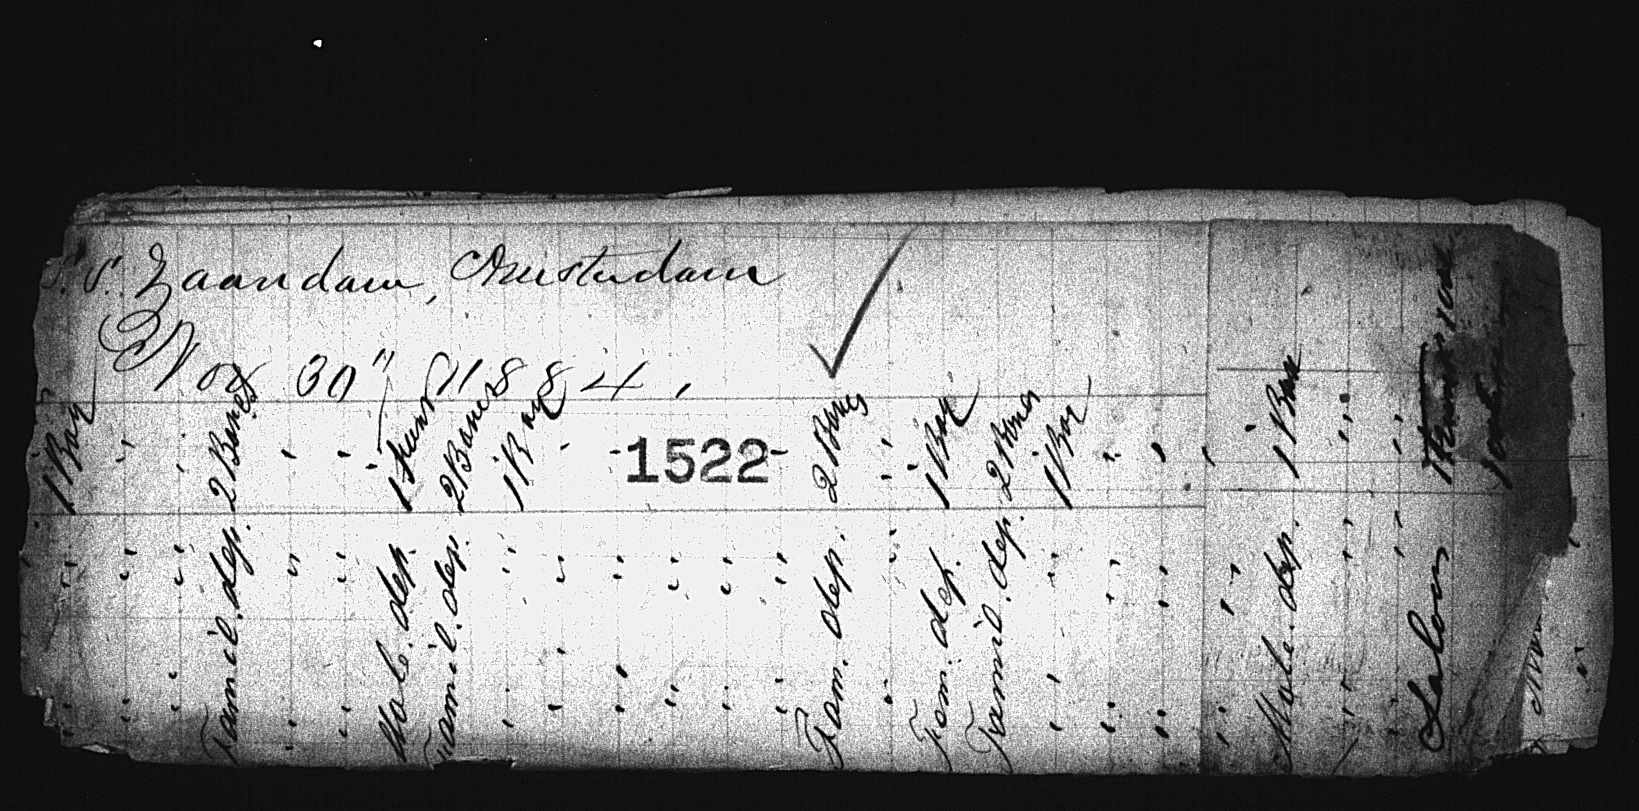 S.S. Zaandam, Amsterdam
Nov 30" 1884.
-1522-
1 Box
Famil. dep. 2 Boxes
Male. dep. 1 Trunk
Famil. dep. 2 Boxes
1 Box
Fam. dep. 2 Boxes
Fam. dep. 1 Box
Famil. dep. 2 Boxes
1 Box
Male. dep. 1 Box
Salon